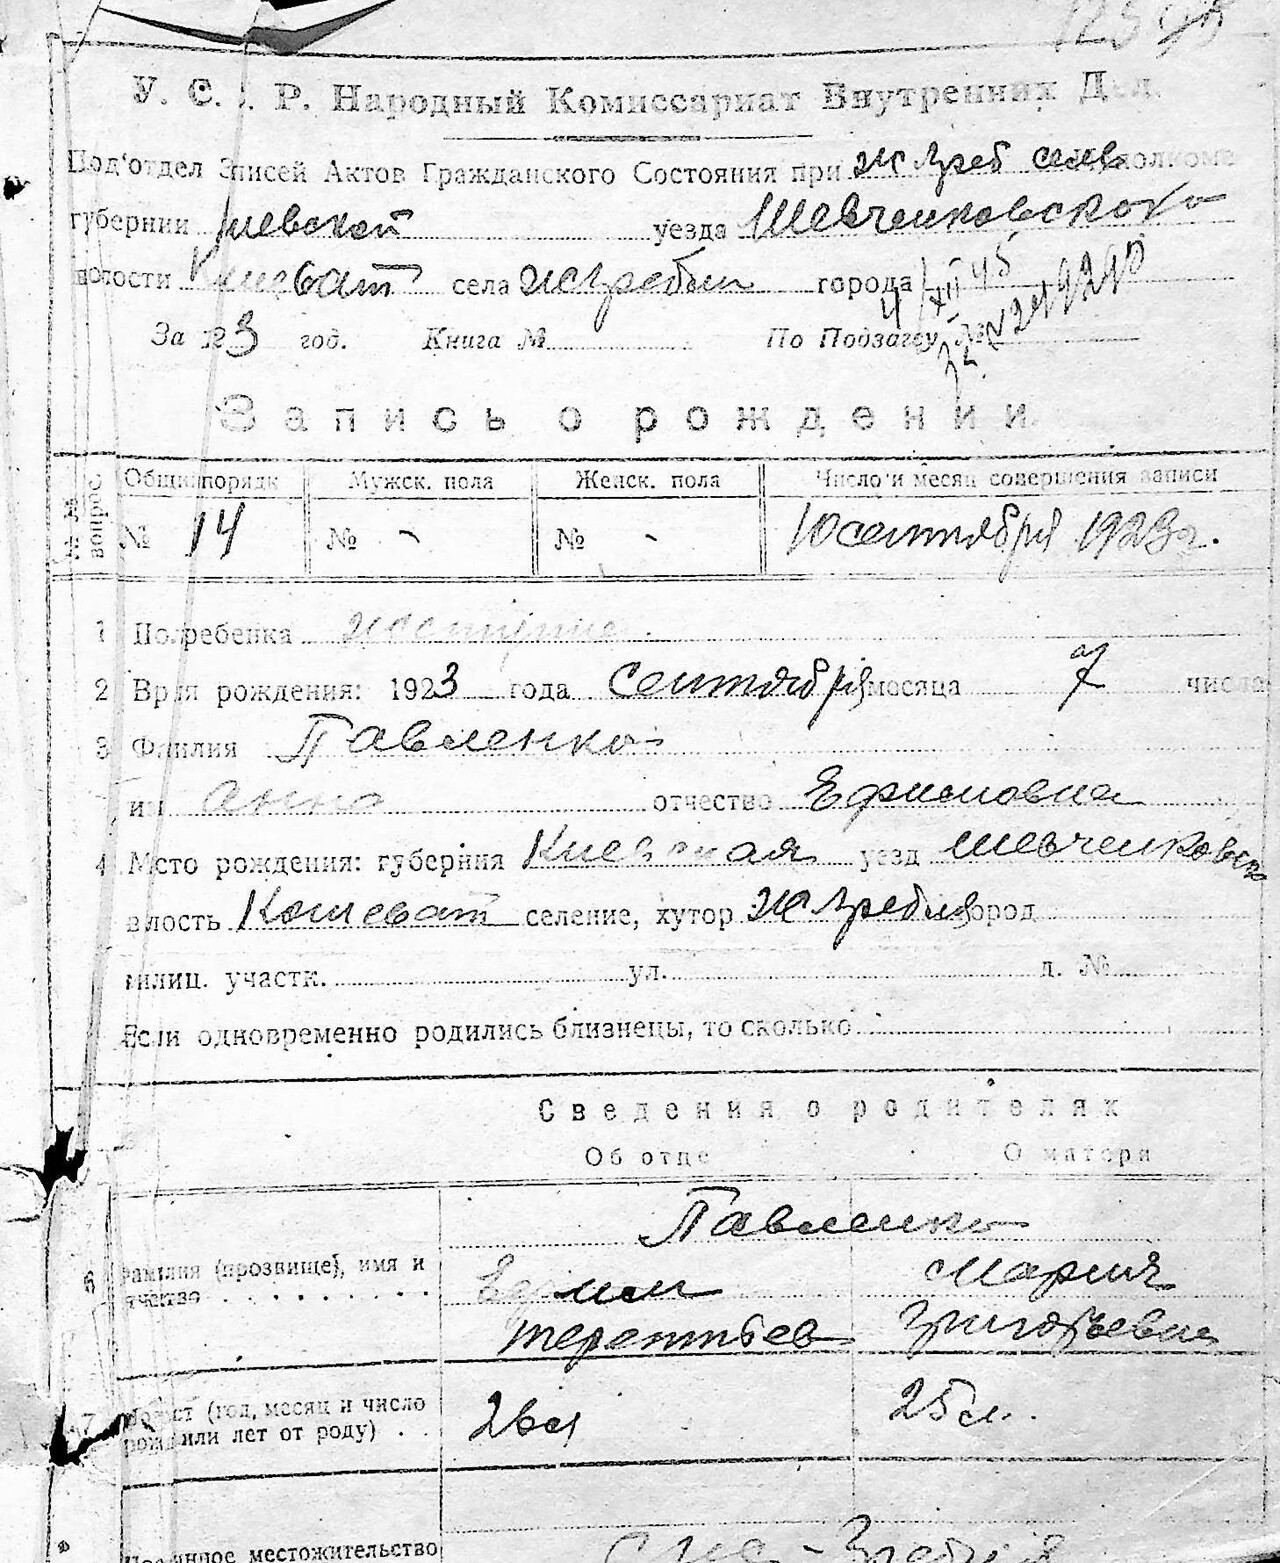 У. С. . Р. Народный Комиссариат Внутренних Дел.
Под'отдел Записей Актов Гражданского Состояния при Жеребской сель исполкоме
губернии Киевской уезда Шевченковского
волости Кошеват села города 4/XII 45
За 1923 год. Книга № По Подзагсу №
Запись о рождении
№ № вопрос. Общ. порядк Мужск. пола Женск. пола Число и месяц совершения записи
№ 14 № - № - 10 сентября 1923 г.
1 Пол ребенка женщина
2 Время рождения: 1923 года сентября месяца 7 числа
3 Фамилия Павленко
имя Анна отчество Ефимовна
4 Место рождения: губерния Киевская уезд Шевченковск
волость Кошеват селение, хутор город
милиц. участк. ул. д. №
Если одновременно родились близнецы, то сколько
Сведения о родителях
Об отце О матери
Павленко
6 Фамилия (прозвище), имя и Ефим Мария
отчество Терентьев Григорьевна
7 Возраст (год, месяц и число 26 л 25 л.
рожд. или лет от роду)
местожительство